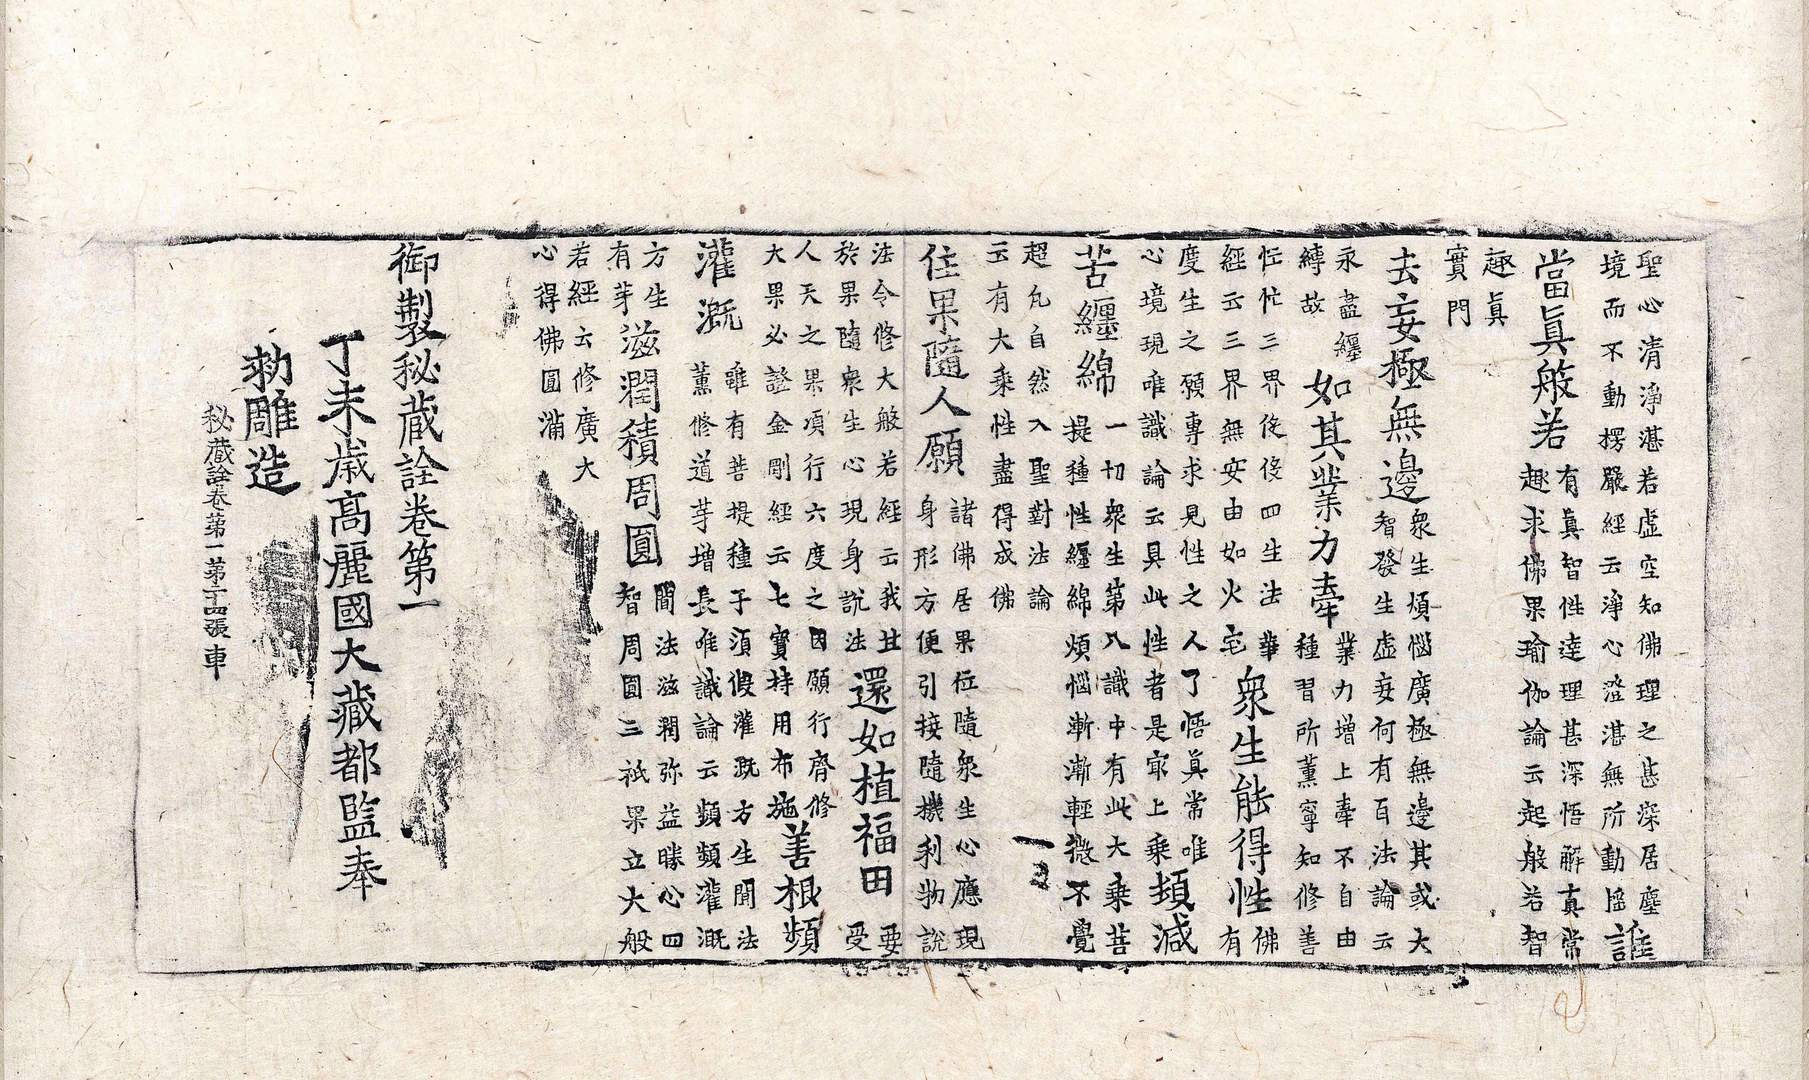 聖心清淨湛若虛空知佛理之甚深居塵
境而不動楞嚴經云淨心澄湛無所動搖誰
當眞般若有眞智性達理甚深悟解真常
趣求佛果瑜伽論云起般若智
趣眞
實門
去妄極無邊衆生煩惱廣極無邊其或大
智發生虛妄何有百法論云
永盡纏
縛故如其業力牽業力增上牽不自由
種習所薰寧知修善
忙忙三界役役四生法華
經云三界無安由如火宅衆生能得性佛
有
度生之願專求見性之人了悟眞常唯
心境現唯識論云具此性者是㝡上乗頻減
苦纏綿一切衆生第八識中有此大乗菩
提種性纏綿煩惱漸漸輕微不覺
超凡自然入聖對法論
云有大乘性盡得成佛
住果隨人願諸佛居果位隨衆生心應現
身形方便引接隨機利物說
法令修大般若經云我甘
於果隨衆生心現身說法還如植福田要
受
人天之果須行六度之因願行齊修
大果必證金剛經云七寶持用布施善根頻
灌漑雖有菩提種子須假灌漑方生聞法
薰修道芽增長唯識論云頻頻灌漑
方生
有芽滋潤積周圓聞法滋潤弥益勝心四
智周圓三祇果立大般
若經云修廣大
心得佛圓滿
御製秘蔵詮卷第一
丁未歳高麗國大藏都監奉
勅雕造
秘蔵詮卷第一第二十四張車